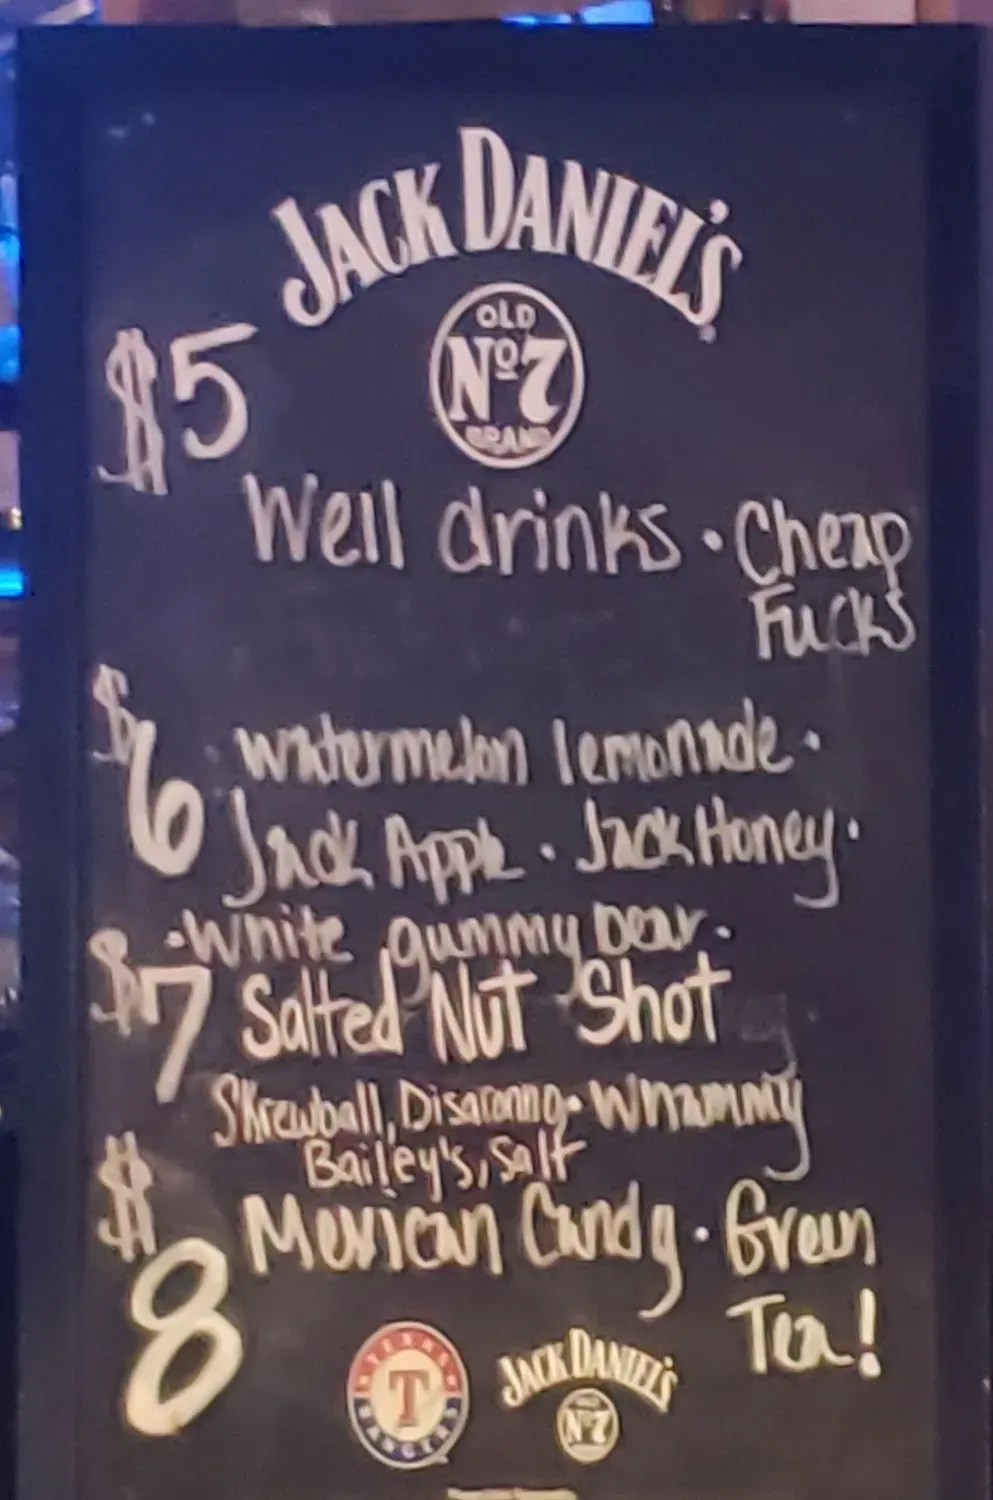 JACK DANIEL'S
OLD
Nº7
BRAND
$5
Well drinks · Cheap
Fucks
$6 watermelon lemonade ·
Jack Apple · Jack Honey ·
· White gummy bear ·
$7 Salted Nut Shot
Skrewball, Disaronno · Whammy
Bailey's, Salt
$8 Mexican Candy · Green
Tea!
TEXAS
T
RANGERS
JACK DANIEL'S
Nº7